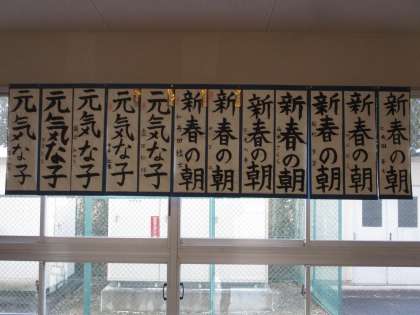 新春の朝
新春の朝
新春の朝
新春の朝
新春の朝
新春の朝
新春の朝
元気な子
元気な子
元気な子
元気な子
元気な子